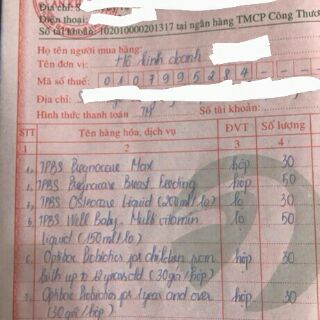 Địa chỉ: S
Điện thoại:
Số tài khoản: 102010000201317 tại ngân hàng TMCP Công Thươ
Họ tên người mua hàng:
Tên đơn vị: Hộ kinh doanh
Mã số thuế: 0107995284
Địa chỉ:
Hình thức thanh toán TM Số tài khoản:
STT Tên hàng hóa, dịch vụ ĐVT Số lượng
1 2 3 4
1. TPBS Pregnacare Max hộp 30
TPBS Pregnacare Breast feeding hộp 50
TPBS Osteocare Liquid (200ml/lọ) lọ 30
TPBS Well Baby - Multi vitamin lọ 50
Liquid (150ml/lọ)
Optibac Probiotics for children from hộp 30
birth up to 12 years old (30 gói/hộp)
Optibac Probiotics for 1 year and over hộp 30
(30 gói/hộp)